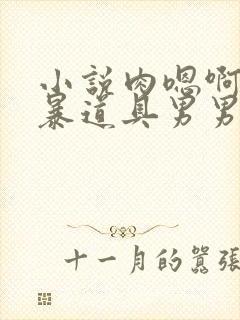 小说肉嗯啊
暴道具男男
十一月的嚣张